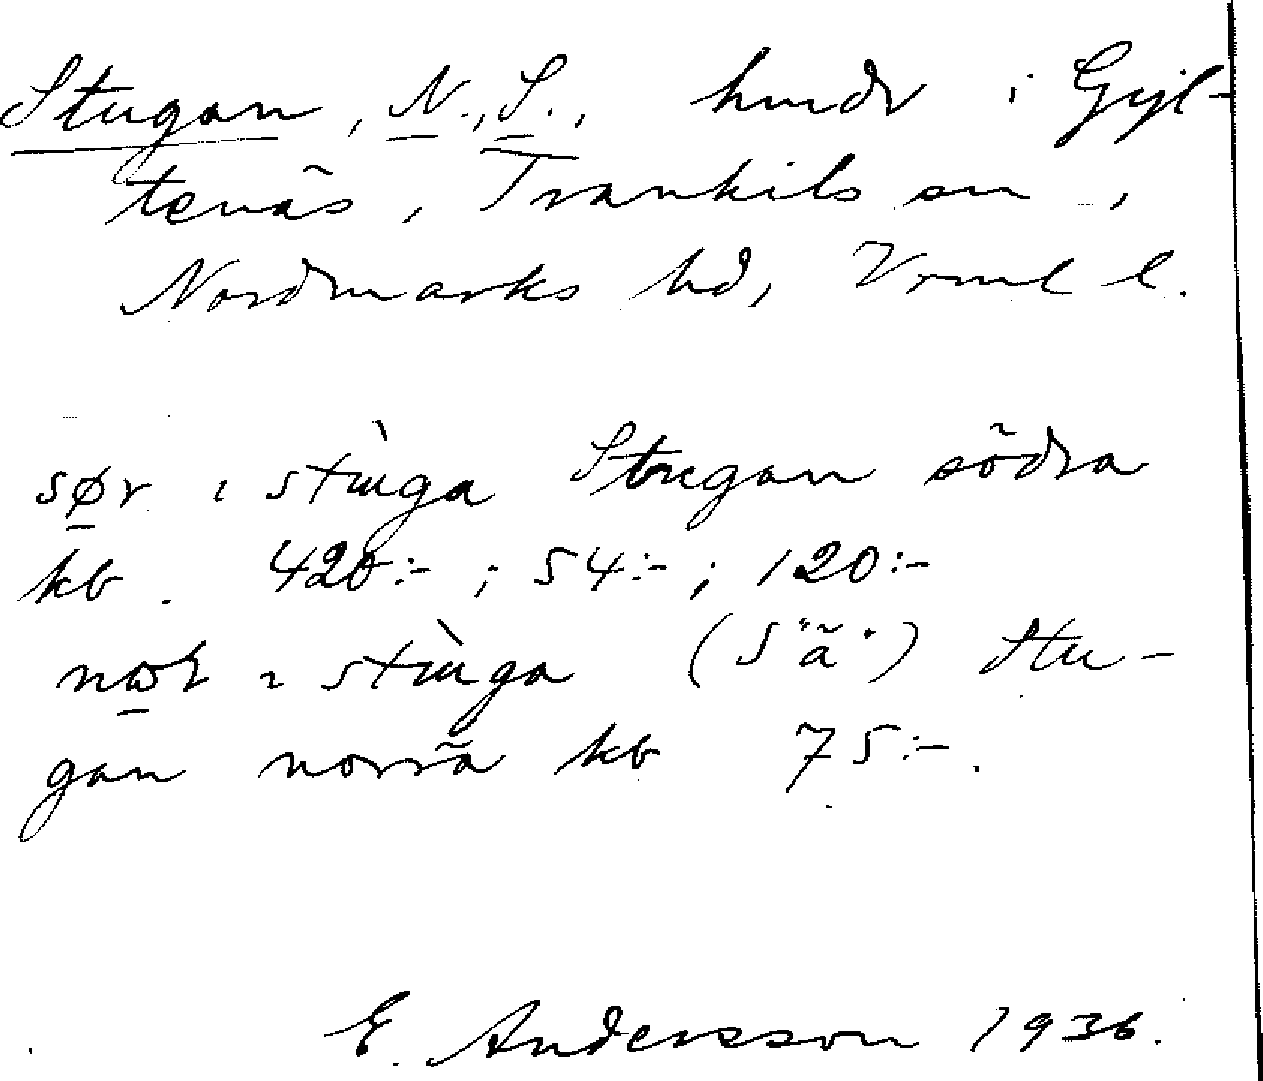 Stugan, N., S., hmdr i Gyl-
tenäs, Trankils sn,
Nordmarks hd, Vrml l.
sør i stùga Stugan södra
kb. 420:- ; 54:- ; 120:-
i stùga (S"ã") Stu-
gan norra kb 75:-.
E. Andersson 1936.